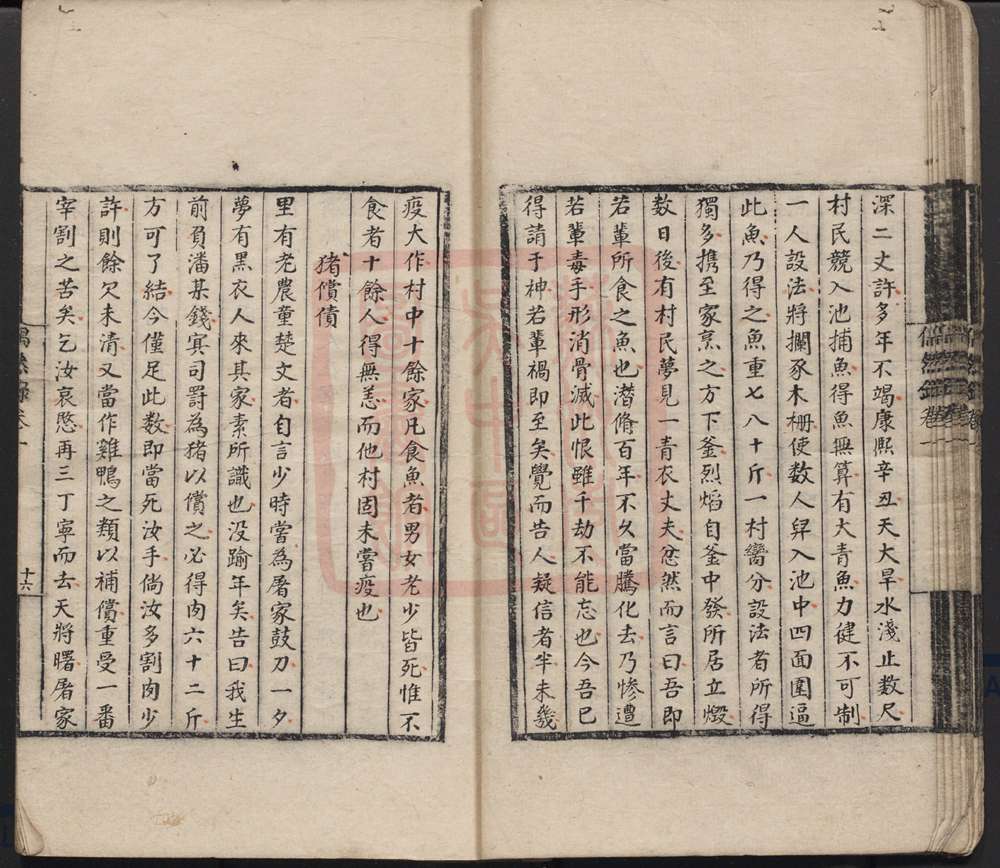 深二丈許多年不竭康熙辛丑天大旱水淺止数尺
村民競入池捕魚得魚無筭有大青魚力健不可制
一人設法將攔豕木栅使数人舁入池中四面圍逼
此魚乃得之魚重七八十斤一村臠分設法者所得
獨多携至家烹之方下釜烈熖自釜中發所居立燬
数日後有村民夢見一青衣丈夫忿然而言曰吾即
若輩所食之魚也潜脩百年不久當騰化去乃慘遭
若輩毒手形消骨滅此恨雖千劫不能忘也今吾已
得請于神若輩禍即至矣覺而告人疑信者半未幾
疫大作村中十餘家凡食魚者男女老少皆死惟不
食者十餘人得無恙而他村固未嘗疫也
猪償債
里有老農童楚文者自言少時嘗為屠家鼓刀一夕
夢有黑衣人來其家素所識也没踰年矣告曰我生
前負潘某錢㝠司罰為猪以償之必得肉六十二斤
方可了結今僅足此数即當死汝手倘汝多割肉少
許則餘欠未清又當作雞鴨之類以補償重受一番
宰割之苦矣乞汝哀愍再三丁寧而去天將曙屠家
偶然錄卷一
十六